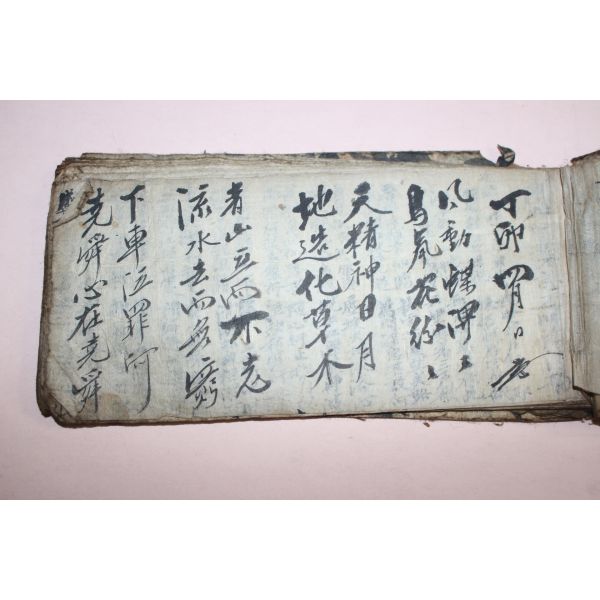 丁卯四月日
風動蝶
鳥花紛々
天精神日月
地造化草木
青山立而不老
流水去而無窮
下車泣罪何
尭舜心在尭舜